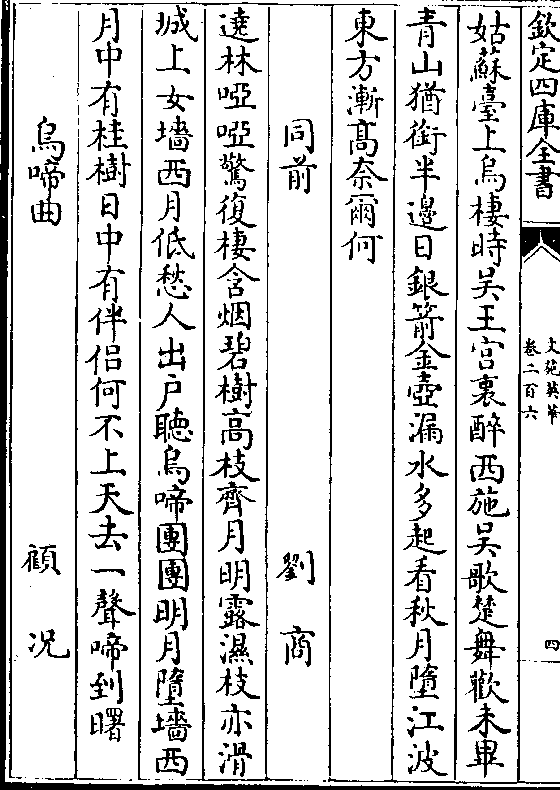 欽定四庫全書
文苑英華
卷二百六
四
姑蘇臺上烏棲時吳王宮裏醉西施吳歌楚舞歡未畢
青山猶銜半邊日銀箭金壺漏水多起看秋月墮江波
東方漸髙奈爾何
同前 劉商
遶林啞啞驚復棲含烟碧樹高枝齊月明露濕枝亦滑
城上女墻西月低愁人出戶聽烏啼團團明月墮墻西
月中有桂樹日中有伴侣何不上天去一聲啼到曙
烏啼曲 顧況